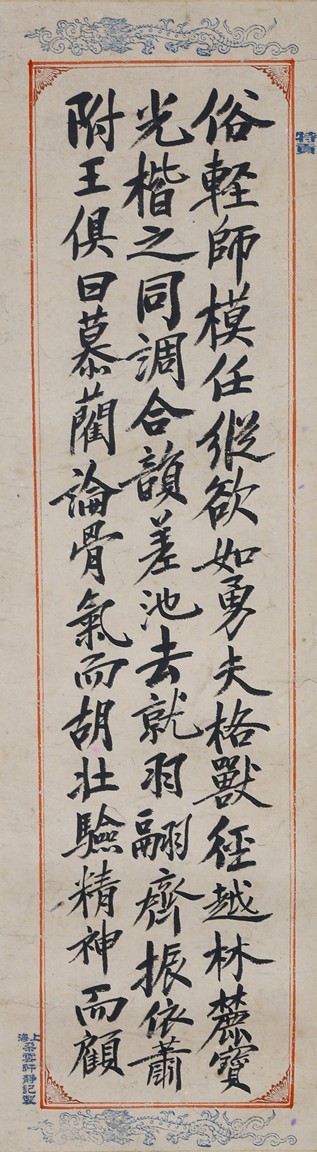 俗輕師模任縱欲如勇夫格獸徑越林麓寶
光楷之同調合韻差池去就羽翮齊振依蕭
附王俱曰慕藺論骨氣而胡壯驗精神而顧
上海朵雲軒靜記製